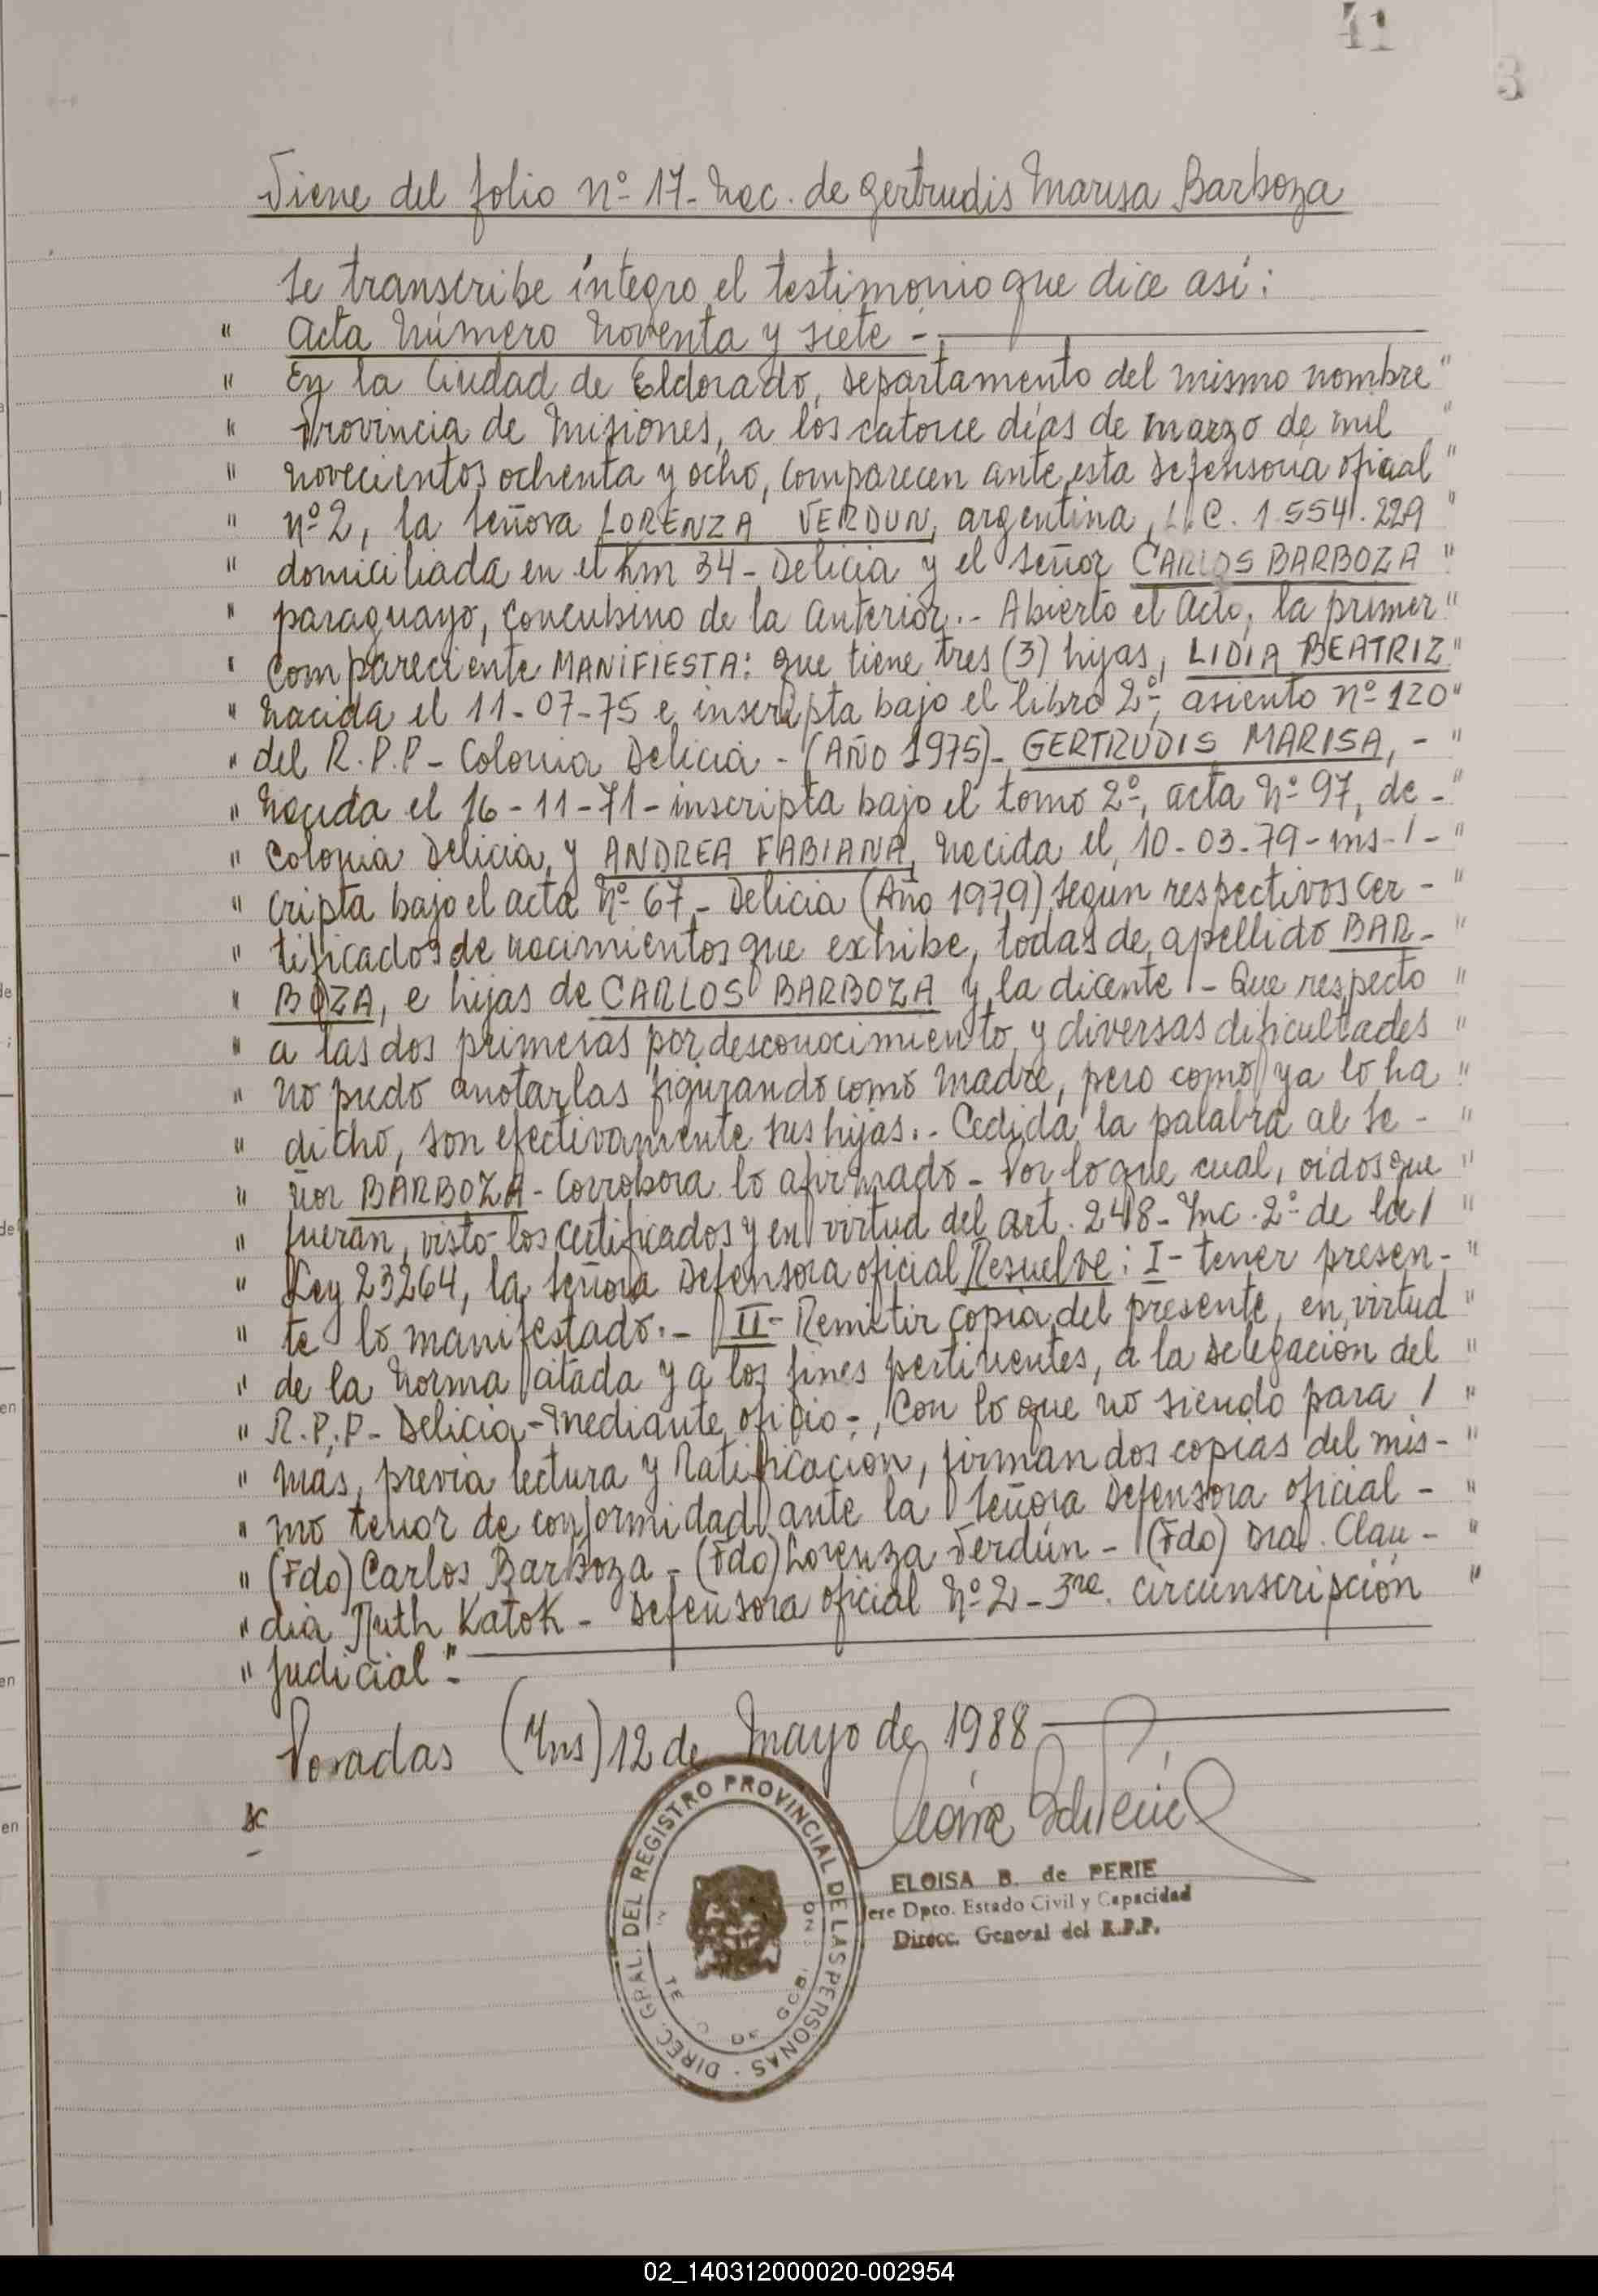 41
3
Viene del folio nº 17- Nac. de Gertrudis Marisa Barboza
Se transcribe íntegro el testimonio que dice así:
" Acta Número Noventa y siete -
" En la Ciudad de Eldorado, Departamento del mismo nombre "
" Provincia de Misiones, a los catorce días de marzo de mil "
" novecientos ochenta y ocho, comparecen ante esta Defensoría oficial "
" nº 2, la señora LORENZA VERDUN, argentina, L.C. 1.554.229 "
" domiciliada en el Km 34 - Delicia y el señor CARLOS BARBOZA "
" paraguayo, concubino de la anterior.- Abierto el Acto, la primer "
" compareciente MANIFIESTA: que tiene tres (3) hijas, LIDIA BEATRIZ "
" nacida el 11-07-75 e inscripta bajo el libro 2º, asiento nº 120 "
" del R.P.P - Colonia Delicia - (AÑO 1975)- GERTRUDIS MARISA, - "
" Nacida el 16-11-71- inscripta bajo el tomo 2º, acta Nº 97, de - "
" Colonia Delicia, y ANDREA FABIANA, nacida el 10-03-79-ins-/- "
" cripta bajo el acta Nº 67 - Delicia (Año 1979) según respectivos cer - "
" tificados de nacimientos que exhibe, todas de apellido BAR- "
" BOZA, e hijas de CARLOS BARBOZA y la dicente - Que respecto "
" a las dos primeras por desconocimiento, y diversas dificultades "
" no pudo anotarlas figurando como madre, pero como ya lo ha "
" dicho, son efectivamente sus hijas.- Cedida la palabra al Se - "
" ñor BARBOZA - Corrobora lo afirmado - Por lo que cual, oídos que "
" fueran, visto los certificados y en virtud del art. 248- Inc. 2º de la / "
" Ley 23264, la señora Defensora oficial Resuelve: I- tener presen- "
" te lo manifestado.- II- Remitir copia del presente, en virtud "
" de la Norma citada y a los fines pertinentes, a la Delegación del "
" R.P.P- Delicia -mediante oficio-, Con lo que no siendo para / "
" más, previa lectura y Ratificación, firman dos copias del mis- "
" mo tenor de conformidad ante la Señora Defensora oficial - "
" (Fdo) Carlos Barboza - (Fdo) Lorenza Verdún - (Fdo) Dra. Clau - "
" dia Ruth Katok - Defensora oficial Nº 2 - 3ra. circunscripción "
" Judicial "-
Posadas (Mns) 12 de Mayo de 1988
DIREC. GRAL. DEL REGISTRO PROVINCIAL DE LAS PERSONAS
ELOISA B. de PERIE
Jefe Dpto. Estado Civil y Capacidad
Direcc. General del R.P.P.
02_140312000020-002954